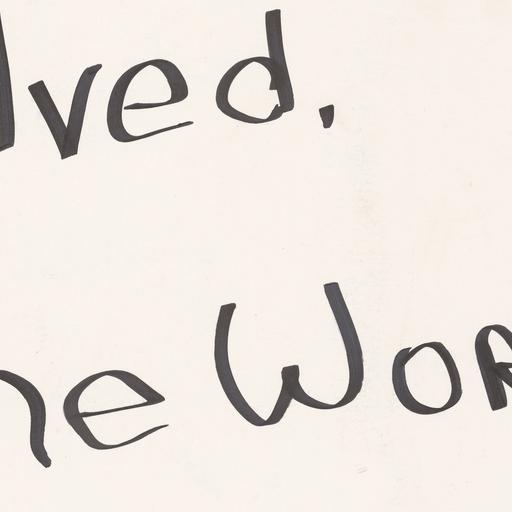 lved,
he Wor